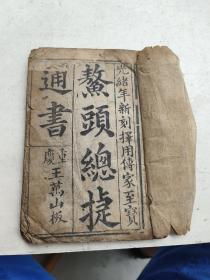 光緒年新刻擇用傳家至寶
鰲頭總捷
通書
重慶王萬山板